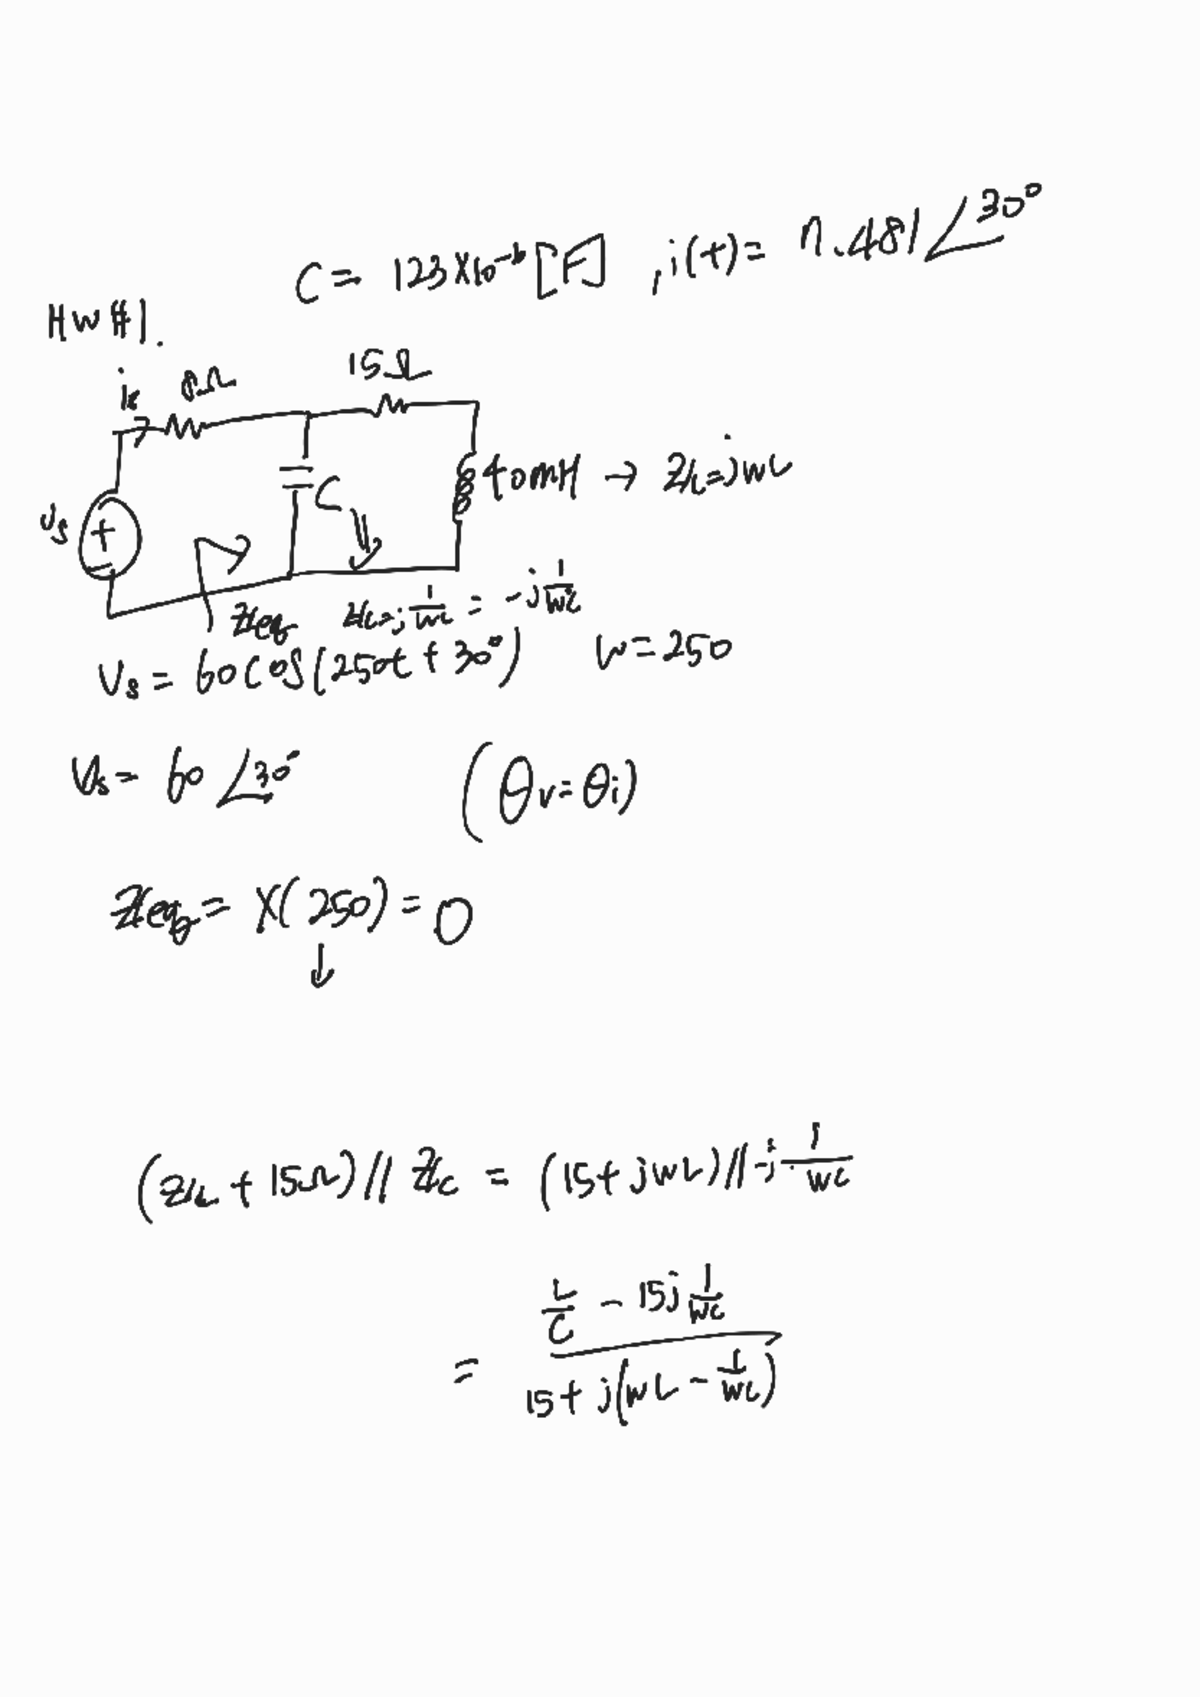 C = 123×10⁻⁶ [F] , i(t) = 7.481∠30°
HW#1.
is 8Ω 15Ω
Vs + − C 40mH → ZL=jωL
Zeq Zc=j 1/ωC = -j 1/ωC
Vs = 60cos(250t + 30°) ω=250
Vs = 60∠30° (θv=θi)
Zeq = X(250) = 0
↓
(ZL + 15Ω) // Zc = (15+jωL) // -j 1/ωC
= (L/C - 15j 1/ωC) / (15 + j(ωL - 1/ωC))